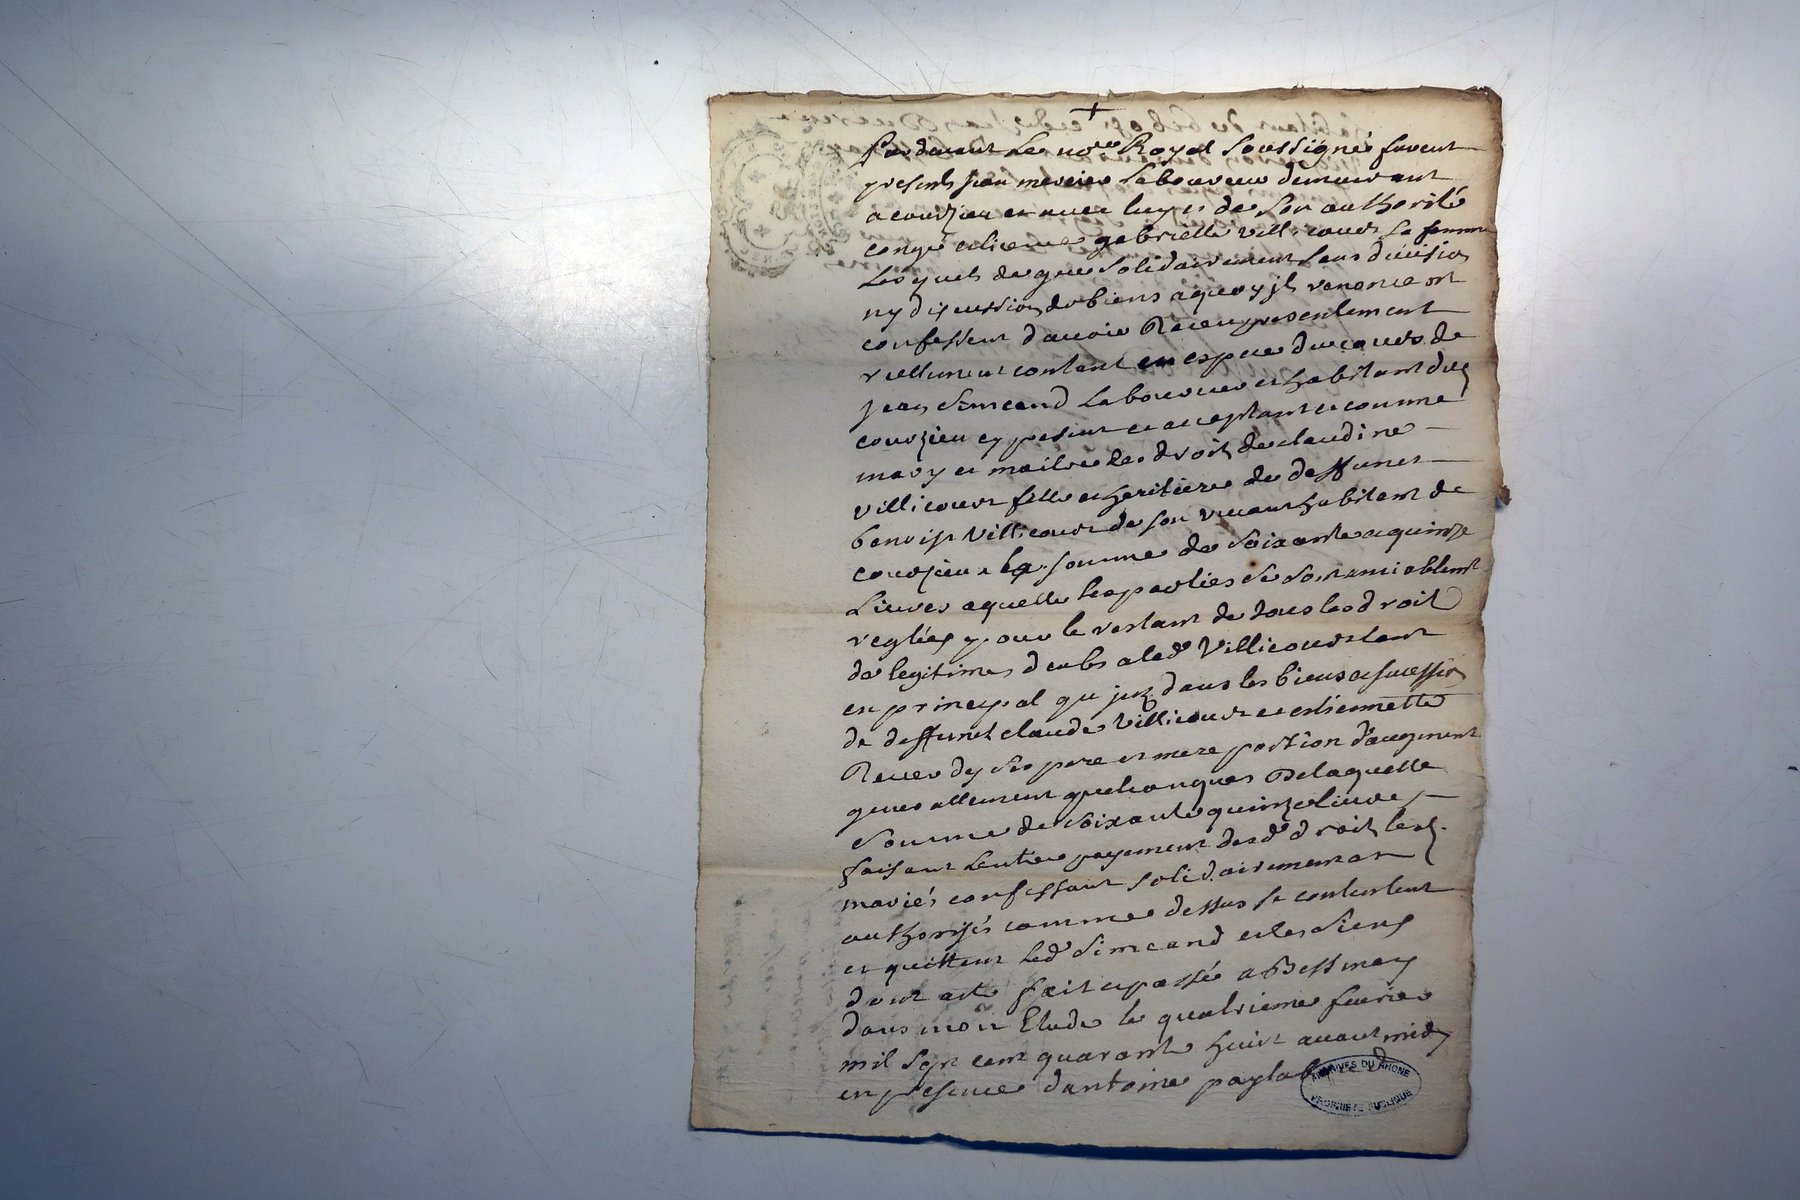 +
Pardevant Le no.re Royal soussigné furent
presents jean mercier laboureur demeurant
a courzieu et avec luy et de son authorité
congé et licence gabrielle villicourt sa femme
Lesquels de gre solidairement sans division
ny discussion de biens a quoy jls renoncent
confessent d'avoir Receu presentement
reellement contant en espece du cours de
jean simeand laboureur et habitant dud
courzieu cy present et acceptant et comme
mary et maitre des droits de claudine
villicourt fille et heritiere de deffunct
benoist villicourt de son vivant habitant de
courzieu la somme de soixante quinze
Livres a quelle les parties se sont amiablemt
reglées pour le restant de tous les droit
de legitimes deubs a lad villicourt tant
en principal qu jnts dans les biens et succession
de deffunct claude villicourt et estiennette
ses pere et mere portion d'augment
generallement quelconques De laquelle
somme de soixante quinze livres
faisant lentier payement desd droits lesd.
mariés confessant solidairement et
authorisés comme dessus se contentent
et quittent led simeand et les siens
dont acte fait et passé a Bessenay
dans mon Etude le quatrieme fevrier
mil sept cent quarante huit avant midy
en presence d'antoine
ARCHIVES DU RHONE
PROPRIETE PUBLIQUE